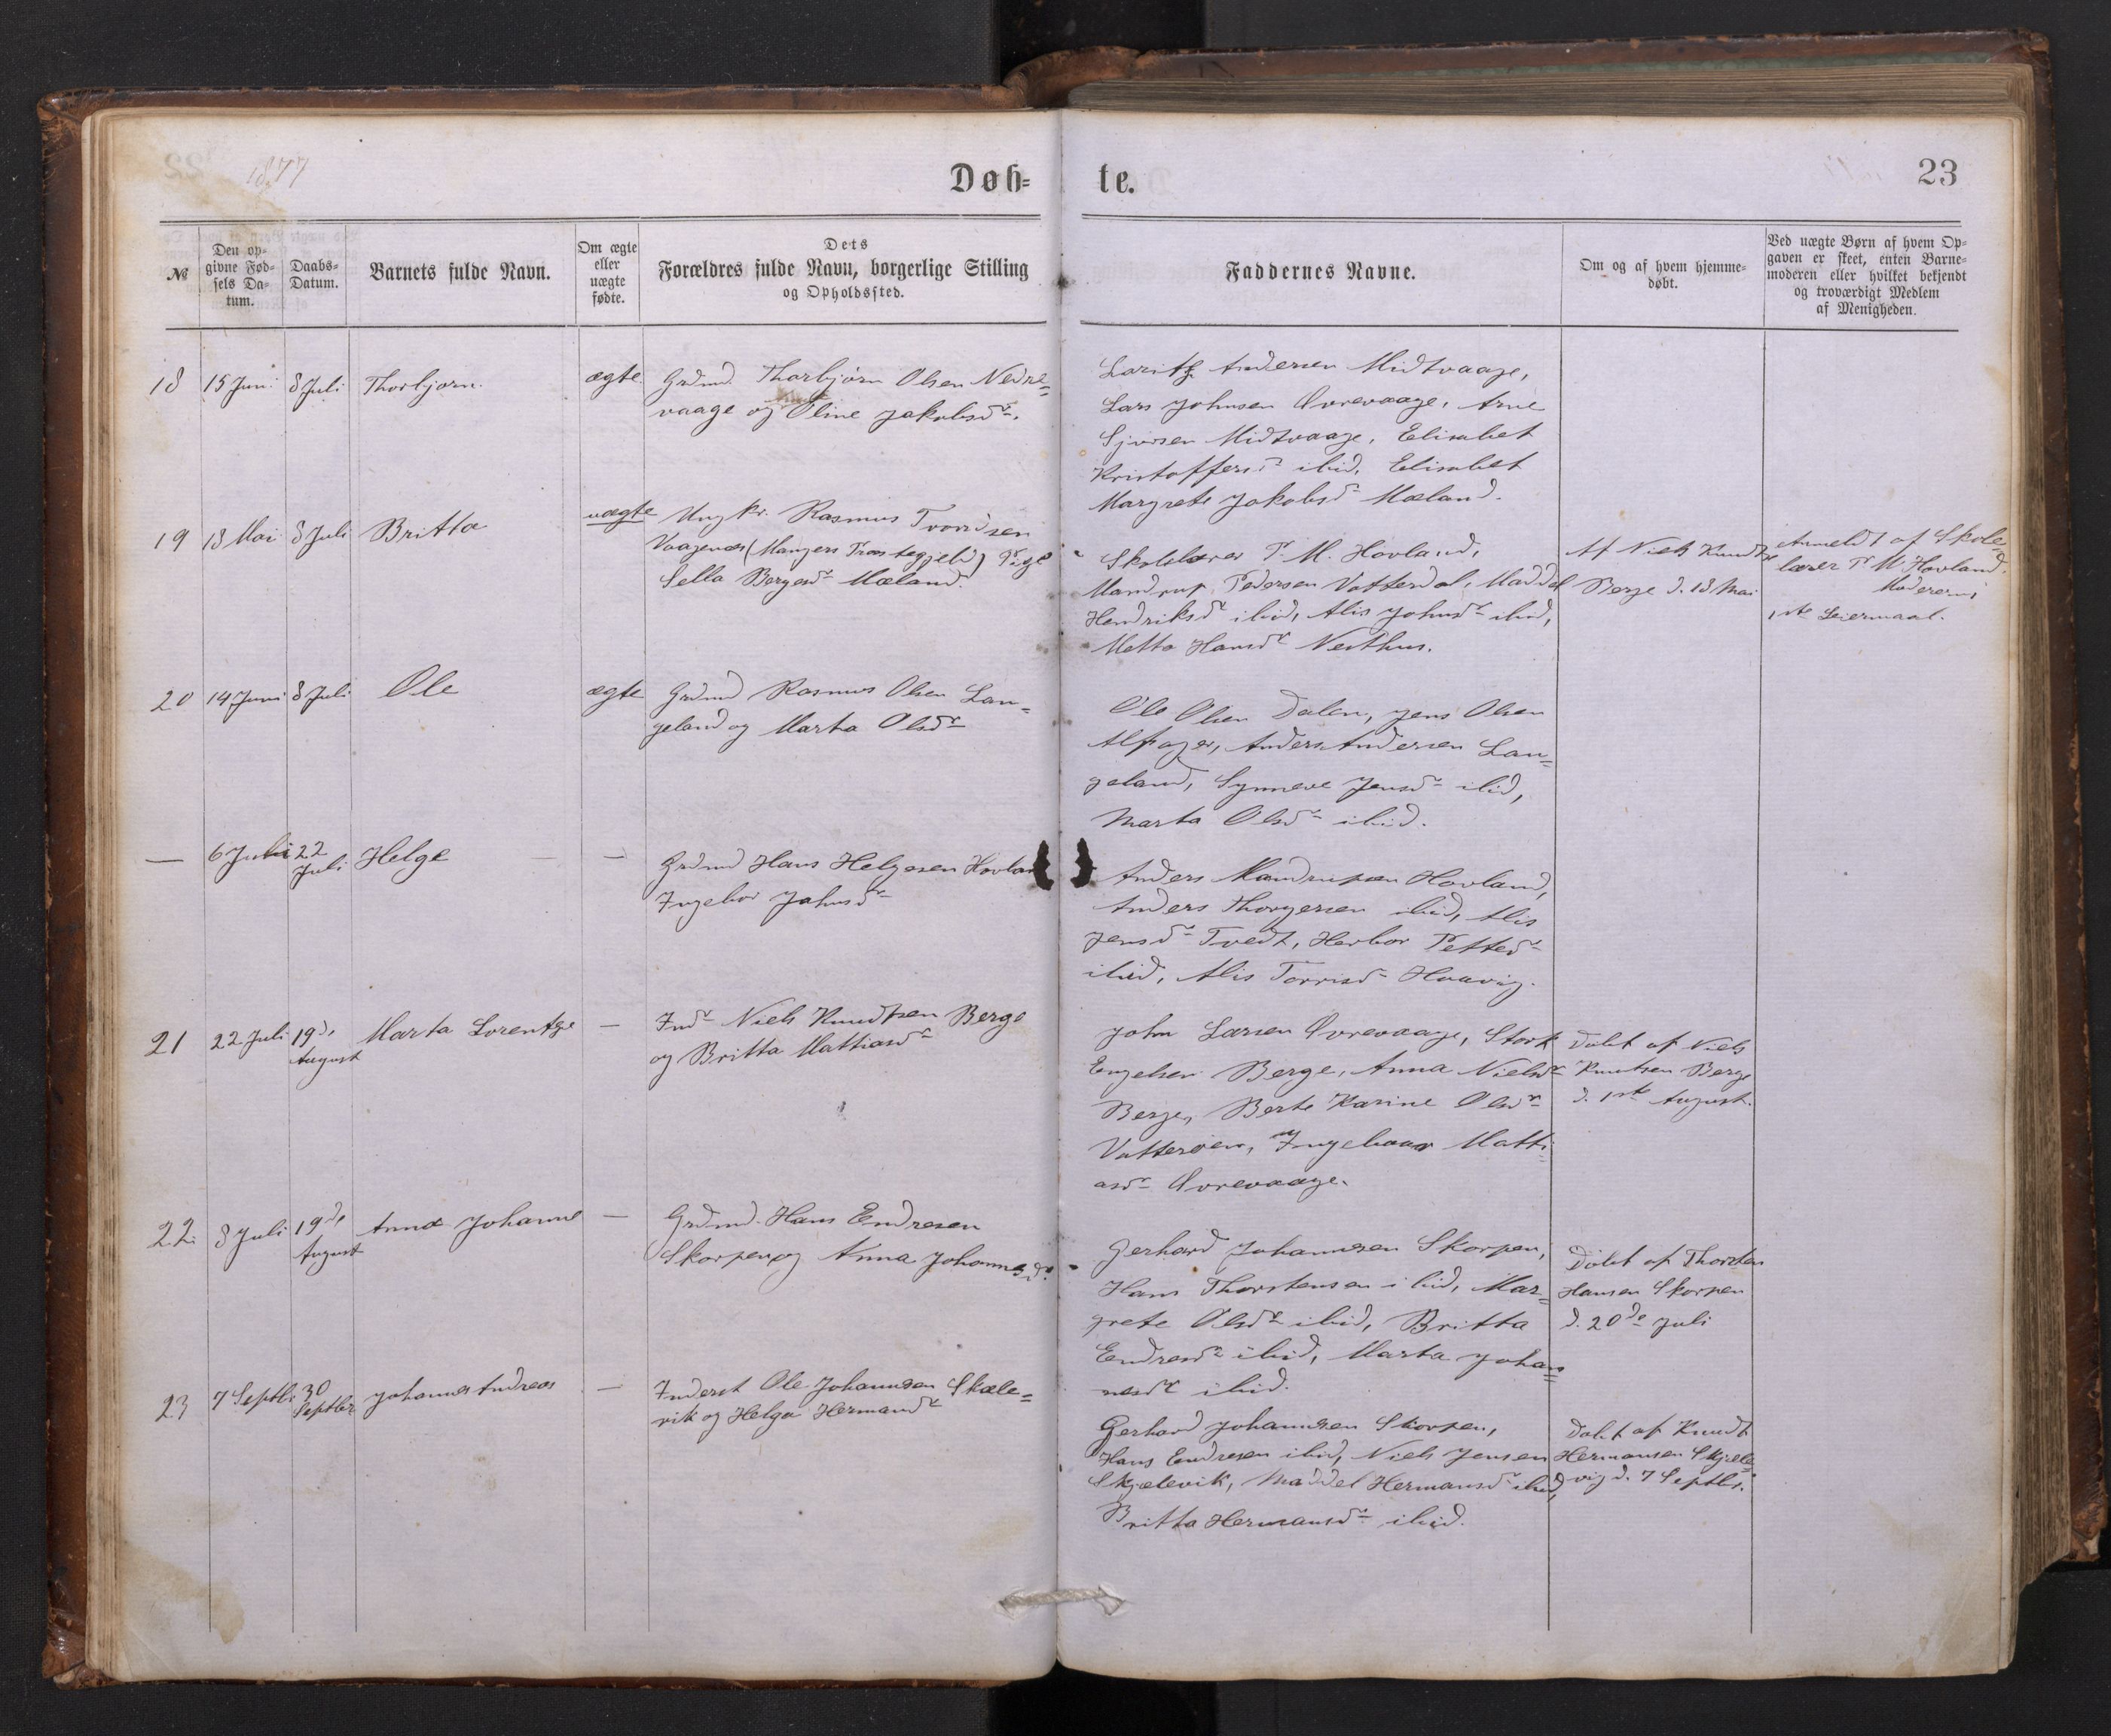 1877
Døb- te.
23
№
Den op-
givne Fød-
sels Da-
tum.
Daabs-
Datum.
Barnets fulde Navn.
Om ægte
eller
uægte
fødte.
Dets
Forældres fulde Navn, borgerlige Stilling
og Opholdssted.
Faddernes Navne.
Om og af hvem hjemme-
døbt.
Ved uægte Børn af hvem Op-
gaven er skeet, enten Barne-
moderen eller hvilket bekjendt
og troværdigt Medlem
af Menigheden.
18 15 Juni 8 Juli Thorbjørn. ægte Grdmd. Thorbjørn Olsen Nedre=
vaage og Oline Jakobsdr.
Andersen Midtvaage,
Lars Johnsen Øvrevaage, Arne
Sjursen Midtvaage, Elisabet
Kristoffersdr ibid, Elisabet
Margrete Jakobsdr Mæland.
19 13 Mai 8 Juli Britta uægte Ungkr. Rasmus
Vaagenæs (Mangers Præstegjeld) Pige
Sella Bergesdr Mæland.
Skolelærer P. M. Hovland,
Mandrup Pedersen Vatterdal, Maddel
Hendriksdr ibid, Alis Johnsdr ibid,
Metta Hansdr Nesthus.
Af Niels Knudts
Berge d. 13 Mai
Anmeldt af Skole=
lærer P. M. Hovland.
Moderens
1ste Leiermaal.
20 14 Juni 8 Juli Ole ægte Grdmd Rasmus Olsen Lan=
geland og Marta Olsdr
Ole Olsen Dalen, Jens Olsen
Anders Andersen Lan=
geland, Synneve Jensdr ibid,
Marta Olsdr ibid.
— 6 Juli 22
Juli Helge — Grdmd Hans Helgesen Hovland
Ingebor Johnsdr
Anders Mandrupsen Hovland,
Anders Thorgersen ibid, Alis
Jensdr Tvedt, Herbor Pettersdr
ibid, Alis Torrisdr Haavig.
21 22 Juli 19de
August Marta Lorentze — Indr Niels Knudtsen Berge
og Britta Mattiasdr
John Larsen Øvrevaage, Stork
Engelsen Berge, Anna Nielsdr
Berge, Berte Karine Olsdr
Vatterøen, Ingeborg Matti=
asdr Øvrevaage.
Døbt af Niels
Knutsen Berge
d. 1ste August.
22 8 Juli 19de
August Anna Johanne — Grdmd. Hans Endresen
Skorpen og Anna Johannesdr.
Gerhard Johannesen Skorpen,
Hans Thorstensen ibid, Mar=
grete Olsdr ibid, Britta
Endresdr ibid, Marta Johan=
nesdr ibid.
Døbt af Thorsten
Hansen Skorpen
d. 20de Juli
23 7 Septbr 30
Septbr Johannes Andreas — Inderst Ole Johannesen Skæle=
vik og Helga Hermansdr
Gerhard Johannesen Skorpen,
Hans Endresen ibid, Niels Jensen
Skjælevik, Maddel Hermansdr ibid,
Britta Hermansdr ibid.
Døbt af Knudt
Hermansen Skjæle=
vig d. 7 Septbr.